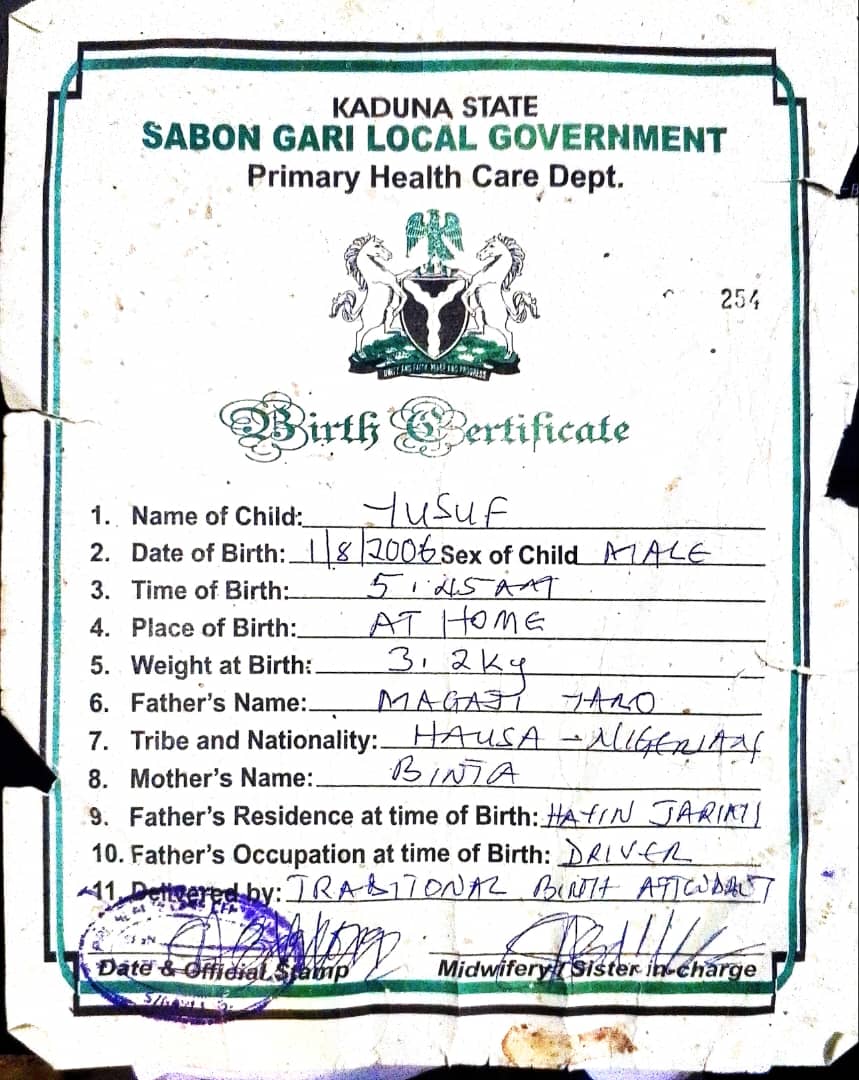 KADUNA STATE
SABON GARI LOCAL GOVERNMENT
Primary Health Care Dept.
UNITY AND FAITH, PEACE AND PROGRESS
254
Birth Certificate
1. Name of Child: YUSUF
2. Date of Birth: 1/8/2006 Sex of Child MALE
3. Time of Birth: 5:45 AM
4. Place of Birth: AT HOME
5. Weight at Birth: 3.2kg
6. Father's Name: MAGAJI YARO
7. Tribe and Nationality: HAUSA - NIGERIAN
8. Mother's Name: BINTA
9. Father's Residence at time of Birth: HAYIN
10. Father's Occupation at time of Birth: DRIVER
11. Delivered by: BIRTH
Date & Official Stamp
Midwifery / Sister in-charge